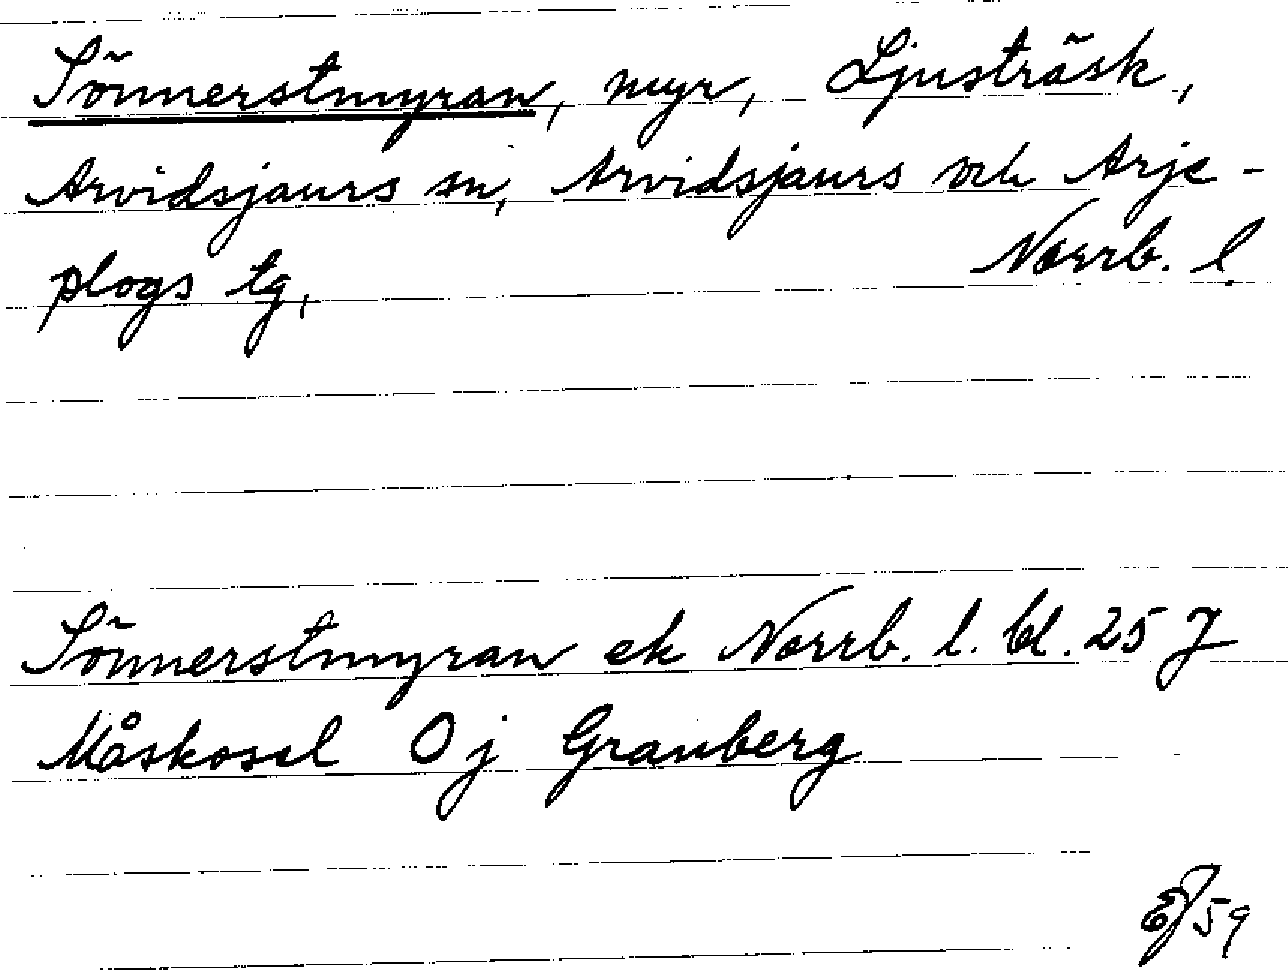 Sönnerstmyran, myr, Ljusträsk,
Arvidsjaurs sn, Arvidsjaurs och Arje-
plogs tg, Norrb. l.
Sönnerstmyran ek Norrb. l. bl. 25 J
Måskosel Oj Granberg
59